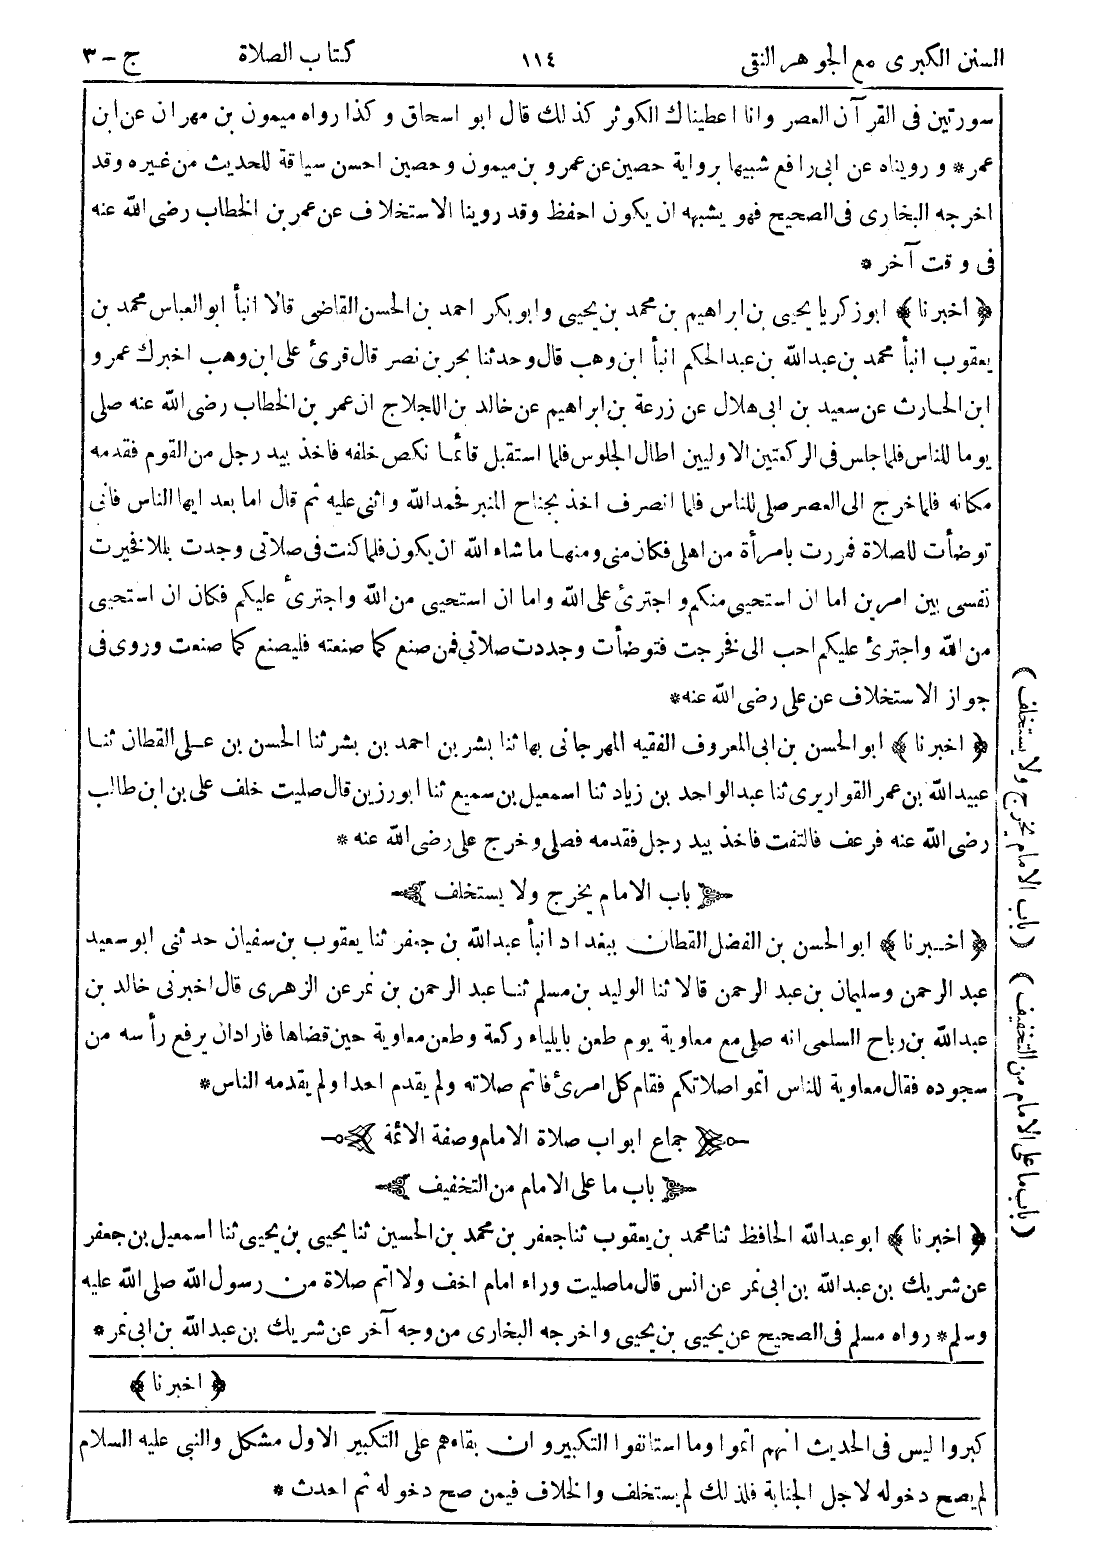 السنن الكبرى مع الجوهر النقى ١١٤ كتاب الصلاة ج - ٣
سورتين فى القرآن العصر وانا اعطيناك الكوثر كذلك قال ابو اسحاق وكذا رواه ميمون بن مهران عن ابن
عمر * و رويناه عن ابى رافع شبيها برواية حصين عن عمرو بن ميمون وحصين احسن سياقة للحديث من غيره وقد
اخرجه البخارى فى الصحيح فهو يشبه ان يكون احفظ وقد روينا الاستخلاف عن عمر بن الخطاب رضى الله عنه
فى وقت آخر *
﴿ اخبرنا ﴾ ابو زكريا يحيى بن ابراهيم بن محمد بن يحيى وابو بكر احمد بن الحسن القاضى قالا انبأ ابو العباس محمد بن
يعقوب انبأ محمد بن عبدالله بن عبد الحكم انبأ ابن وهب قال وحدثنا بحر بن نصر قال قرئ على ابن وهب اخبرك عمرو
ابن الحارث عن سعيد بن ابى هلال عن زرعة بن ابراهيم عن خالد بن اللجلاج ان عمر بن الخطاب رضى الله عنه صلى
يوما للناس فلما جلس فى الركعتين الاوليين اطال الجلوس فلما استقبل قائما نكص خلفه فاخذ بيد رجل من القوم فقدمه
مكانه فلما خرج الى العصر صلى للناس فلما انصرف اخذ بجناح المنبر فحمد الله واثنى عليه ثم قال اما بعد ايها الناس فانى
توضأت للصلاة فمررت بامرأة من اهلى فكان منى ومنها ما شاء الله ان يكون فلما كنت فى صلاتى وجدت بللا فخيرت
نفسى بين امرين اما ان استحيى منكم و اجترئ على الله واما ان استحيى من الله واجترئ عليكم فكان ان استحيى
من الله واجترئ عليكم احب الى فخرجت فتوضأت وجددت صلاتى فمن صنع كما صنعته فليصنع كما صنعت وروى فى
جواز الاستخلاف عن على رضى الله عنه *
﴿ اخبرنا ﴾ ابو الحسن بن ابى المعروف الفقيه المهرجانى بها ثنا بشر بن احمد بن بشر ثنا الحسن بن على القطان ثنا
عبيد الله بن عمر القواريرى ثنا عبدالواحد بن زياد ثنا اسمعيل بن سميع ثنا ابورزين قال صليت خلف على بن ابن طالب
رضى الله عنه فرعف فالتفت فاخذ بيد رجل فقدمه فصلى وخرج على رضى الله عنه *
باب الامام يخرج ولا يستخلف
﴿ اخبرنا ﴾ ابو الحسن بن الفضل القطان ببغداد انبأ عبدالله بن جعفر ثنا يعقوب بن سفيان حدثنى ابو سعيد
عبد الرحمن وسليمان بن عبد الرحمن قالا ثنا الوليد بن مسلم ثنا عبد الرحمن بن نمر عن الزهرى قال اخبرنى خالد بن
عبدالله بن رباح السلمى انه صلى مع معاوية يوم طعن بايلياء ركعة وطعن معاوية حين قضاها فارادان يرفع رأسه من
سجوده فقال معاوية للناس اتموا صلاتكم فقام كل امرئ فاتم صلاته ولم يقدم احدا ولم يقدمه الناس *
جماع ابواب صلاة الامام وصفة الائمة
باب ما على الامام من التخفيف
﴿ اخبرنا ﴾ ابو عبدالله الحافظ ثنا محمد بن يعقوب ثنا جعفر بن محمد بن الحسين ثنا يحيى بن يحيى ثنا اسمعيل بن جعفر
عن شريك بن عبدالله بن ابى نمر عن انس قال ما صليت وراء امام اخف ولا اتم صلاة من رسول الله صلى الله عليه
وسلم * رواه مسلم فى الصحيح عن يحيى بن يحيى واخرجه البخارى من وجه آخر عن شريك بن عبدالله بن ابى نمر *
﴿ اخبرنا ﴾
كبروا ليس فى الحديث انهم اتموا وما استانفوا التكبير و ان بقاءهم على التكبير الاول مشكل والنبى عليه السلام
لم يصح دخوله لاجل الجنابة فلذلك لم يستخلف والخلاف فيمن صح دخوله ثم احدث *
( باب الامام يخرج ولا يستخلف )
( باب ما على الامام من التخفيف )